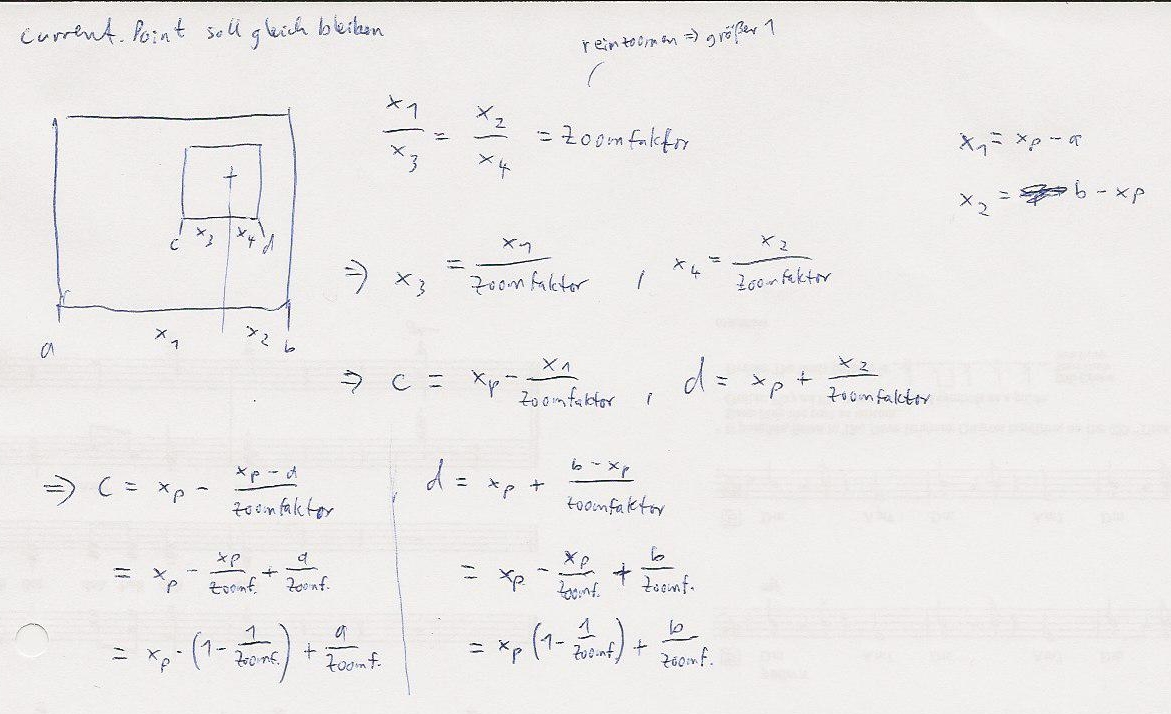 Current.Point soll gleich bleiben
reinzoomen ⇒ größer 1
x1/x3 = x2/x4 = Zoomfaktor
x1 = xp - a
x2 = b - xp
c x3 x4 d
a x1 x2 b
⇒ x3 = x1/Zoomfaktor , x4 = x2/Zoomfaktor
⇒ c = xp - x1/Zoomfaktor , d = xp + x2/Zoomfaktor
⇒ c = xp - (xp - a)/Zoomfaktor
d = xp + (b - xp)/Zoomfaktor
= xp - xp/Zoomf. + a/Zoomf.
= xp - xp/Zoomf. + b/Zoomf.
= xp · (1 - 1/Zoomf.) + a/Zoomf.
= xp (1 - 1/Zoomf.) + b/Zoomf.